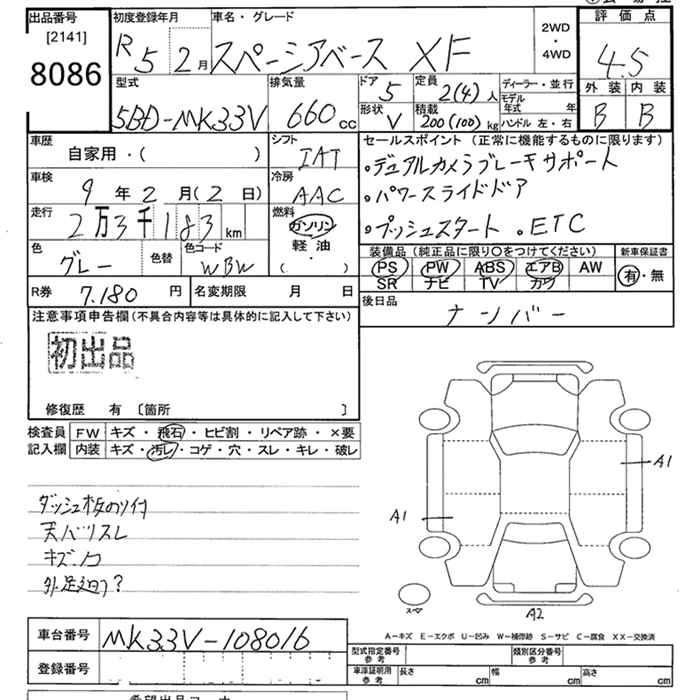 出品番号
[2141]
8086
初度登録年月
R5 2月
車名・グレード
スペーシアベース XF
2WD
・
4WD
評価点
4.5
外装 内装
B B
型式
5BD-MK33V
排気量
660 cc
ドア 5
形状 V
定員 2(4)人
積載 200(100)kg
ディーラー・並行
モデル年式 年
ハンドル 左・右
車歴
自家用・( )
車検
9年2月(2日)
走行
2万3千183 km
色
グレー
色替
色コード
WBW
シフト
IAT
冷房
AAC
燃料
ガソリン
軽油
( ・ )
セールスポイント(正常に機能するものに限ります)
・デュアルカメラブレーキサポート
・パワースライドドア
・プッシュスタート ・ETC
装備品(純正品に限り〇をつけてください)
PS PW ABS エアB AW
SR ナビ TV カワ
新車保証書
有・無
R券 7.180 円
名変期限 月 日
後日品
ナンバー
注意事項申告欄(不具合内容等は具体的に記入して下さい)
初出品
修復歴 有 〔箇所 〕
検査員
記入欄
FW キズ・飛石・ヒビ割・リペア跡・×要
内装 キズ・汚レ・コゲ・穴・スレ・キレ・破レ
ダッシュ板のり付
天バリスレ
キズ、凹
外足廻り?
A1
A1
スペア
A2
A-キズ E-エクボ U-凹み W-補修跡 S-サビ C-腐食 XX-交換済
車台番号 MK33V-108016
登録番号
型式指定番号
参考
類別区分番号
参考
車庫証明用
参考
長さ cm 幅 cm 高さ cm